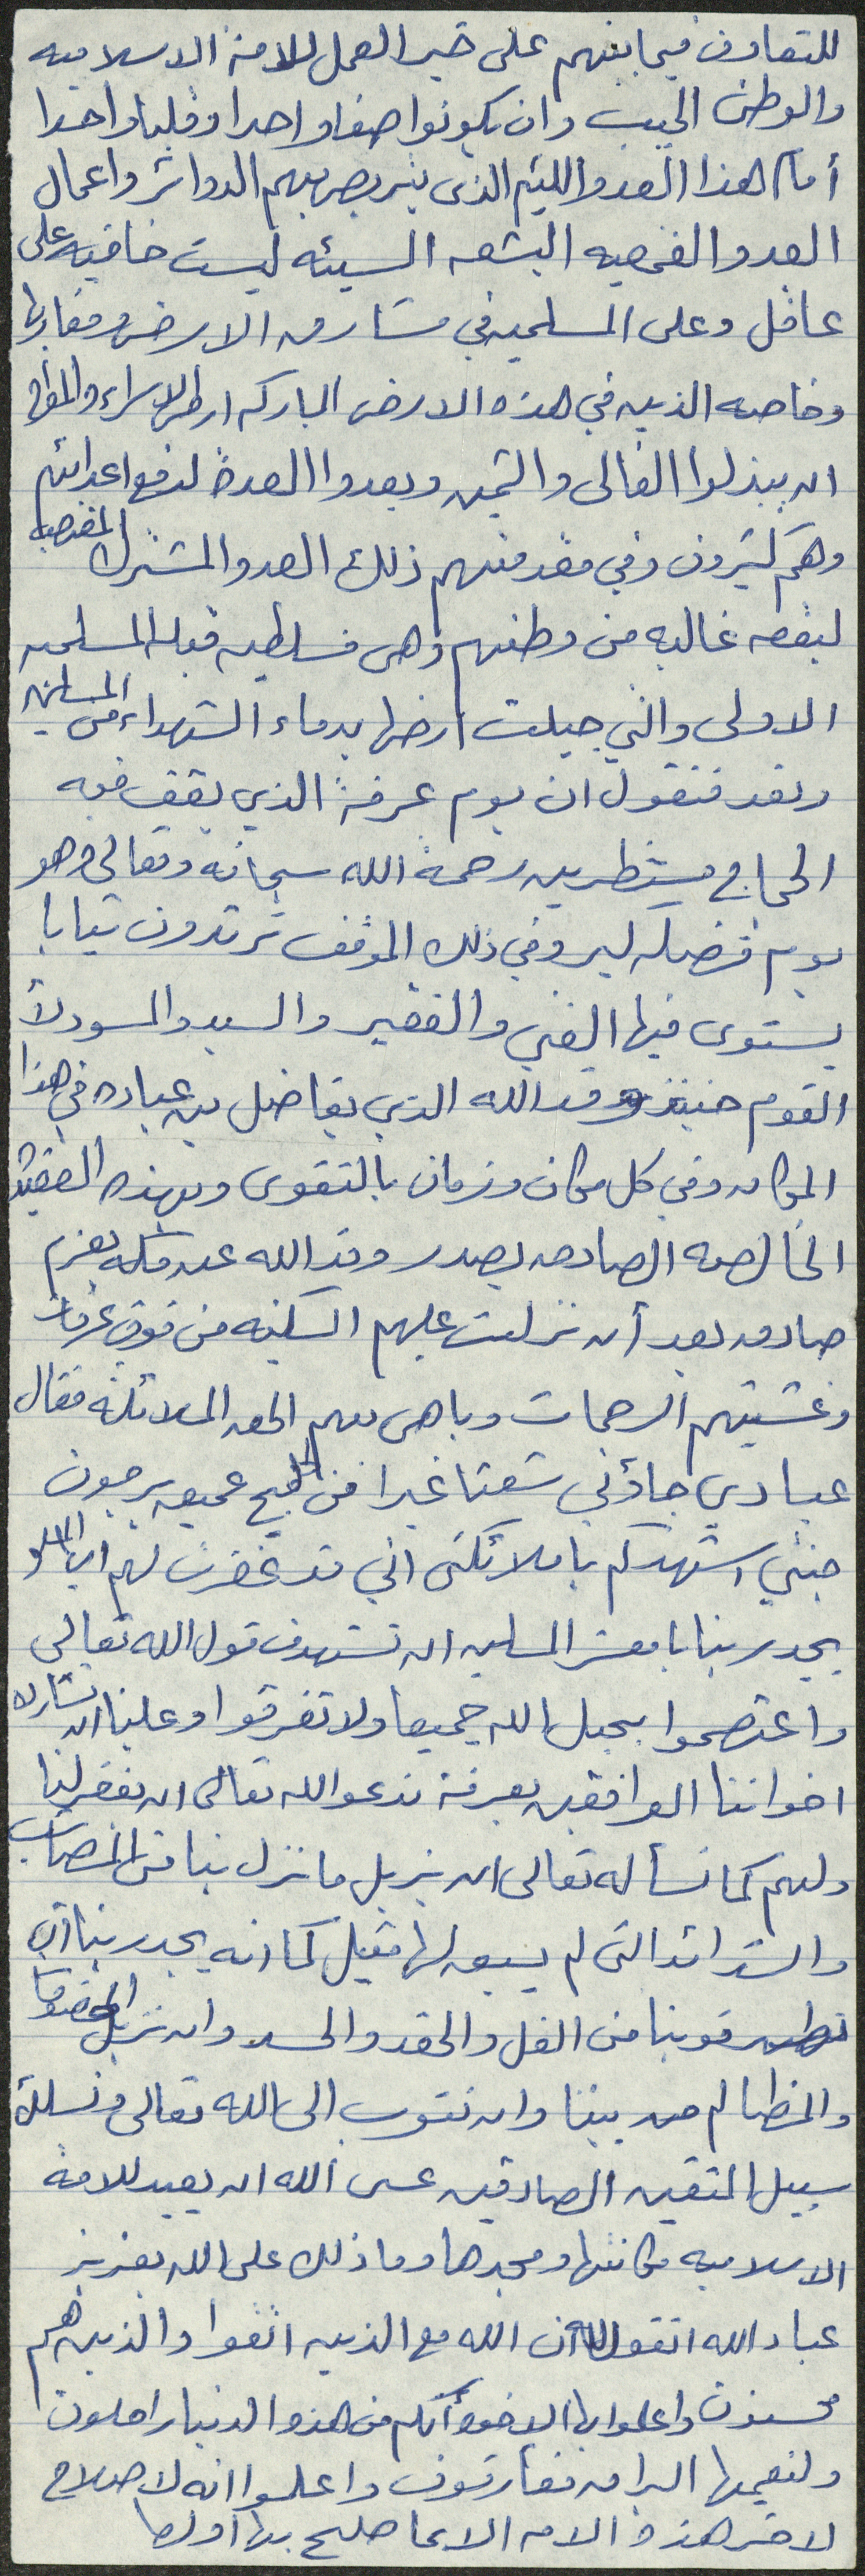 للتعاون فيما بينهم على خير العمل للامة الاسلاميه
والوطن الحبيب وان يكونوا صفا واحدا وقلبا واحدا
أمام هذا العدو اللئيم الذى يتربص بهم الدوائر واعمال
العدو القمعيه البشعه السيئه ليست خافيه على
عاقل وعلى المسلمين في مشارق الارض ومغاربها
وخاصه الذين في هذه الارض المباركه ارض الاسراء والمعراج
ان يبذلوا الغالى والثمين ويعدوا العدة لدفع اعدائهم
وهم كثيرون وفي مقدمتهم ذلك العدو المشترك المغتصب
لبقعه غاليه من وطنهم وهى فلسطين قبلة المسلمين
الاولى والتي جبلت ارضها بدماء الشهداء من المسلمين
وبعد فنقول ان يوم عرفة الذي يقف فيه
الحجاج منتظرين رحمة الله سبحانه وتعالى وهو
يوم فضله كبير وفي ذلك الموقف ترتدون ثيابا
يستوى فيها الغني والفقير والسيد والمسود لأن
القوم حينئذ وفد الله الذي يفاضل بين عباده في هذا
المكان وفي كل مكان وزمان بالتقوى وبهذه العقيدة
الخالصه الصادقه يصدر وفد الله عن مكه بعزم
صادق بعد أن نزلت عليهم السكينه من فوق عرفات
وغشيتهم الرحمات وباهى بهم الحق الملائكة فقال
عبادي جاؤني شعثا غبرا من كل فج عميق يرجون
جنتي اشهدكم يا ملائكتى اني قد غفرت لهم ايها الاخوة
يجدر بنا يا معشر المسلمين ان نستهدف قول الله تعالى
واعتصموا بحبل الله جميعا ولا تفرقوا وعلينا ان نشارك
اخواننا الواقفين بعرفة ندعو الله تعالى ان يغفر لنا
ولهم كما نسأله تعالى ان يزيل ما نزل بنا من المصائب
والشدائد التى لم يسبق لها مثيل كما انه يجدر بنا أن
نطهر قلوبنا من الغل والحقد والحسد وان نزيل الخصومات
والمظالم من بيننا وان نتوب الى الله تعالى ونسلك
سبيل المتقين الصادقين عسى الله ان يعيد للامة
الاسلاميه مكانتها ومجدها وما ذلك على الله بعزيز
عباد الله اتقوا الله ان الله مع الذين اتقوا والذين هم
محسنون واعلموا ايها الاخوة أنكم من هذه الدنيا راحلون
ولنعيمها البراق مفارقون واعلموا انه لا صلاح
لاخر هذه الامه الا بما صلح بها أولها